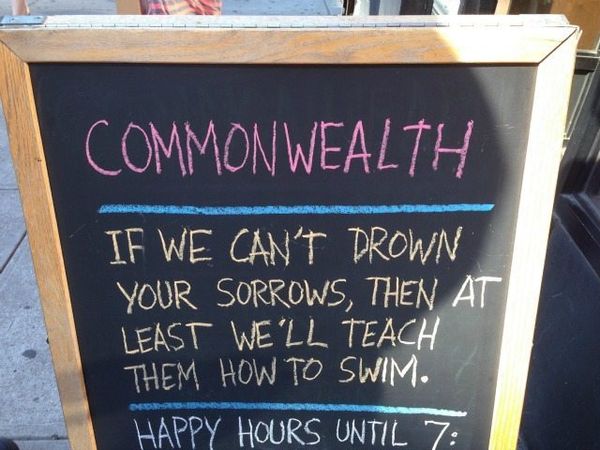 COMMONWEALTH
IF WE CAN'T DROWN
YOUR SORROWS, THEN AT
LEAST WE'LL TEACH
THEM HOW TO SWIM.
HAPPY HOURS UNTIL 7: